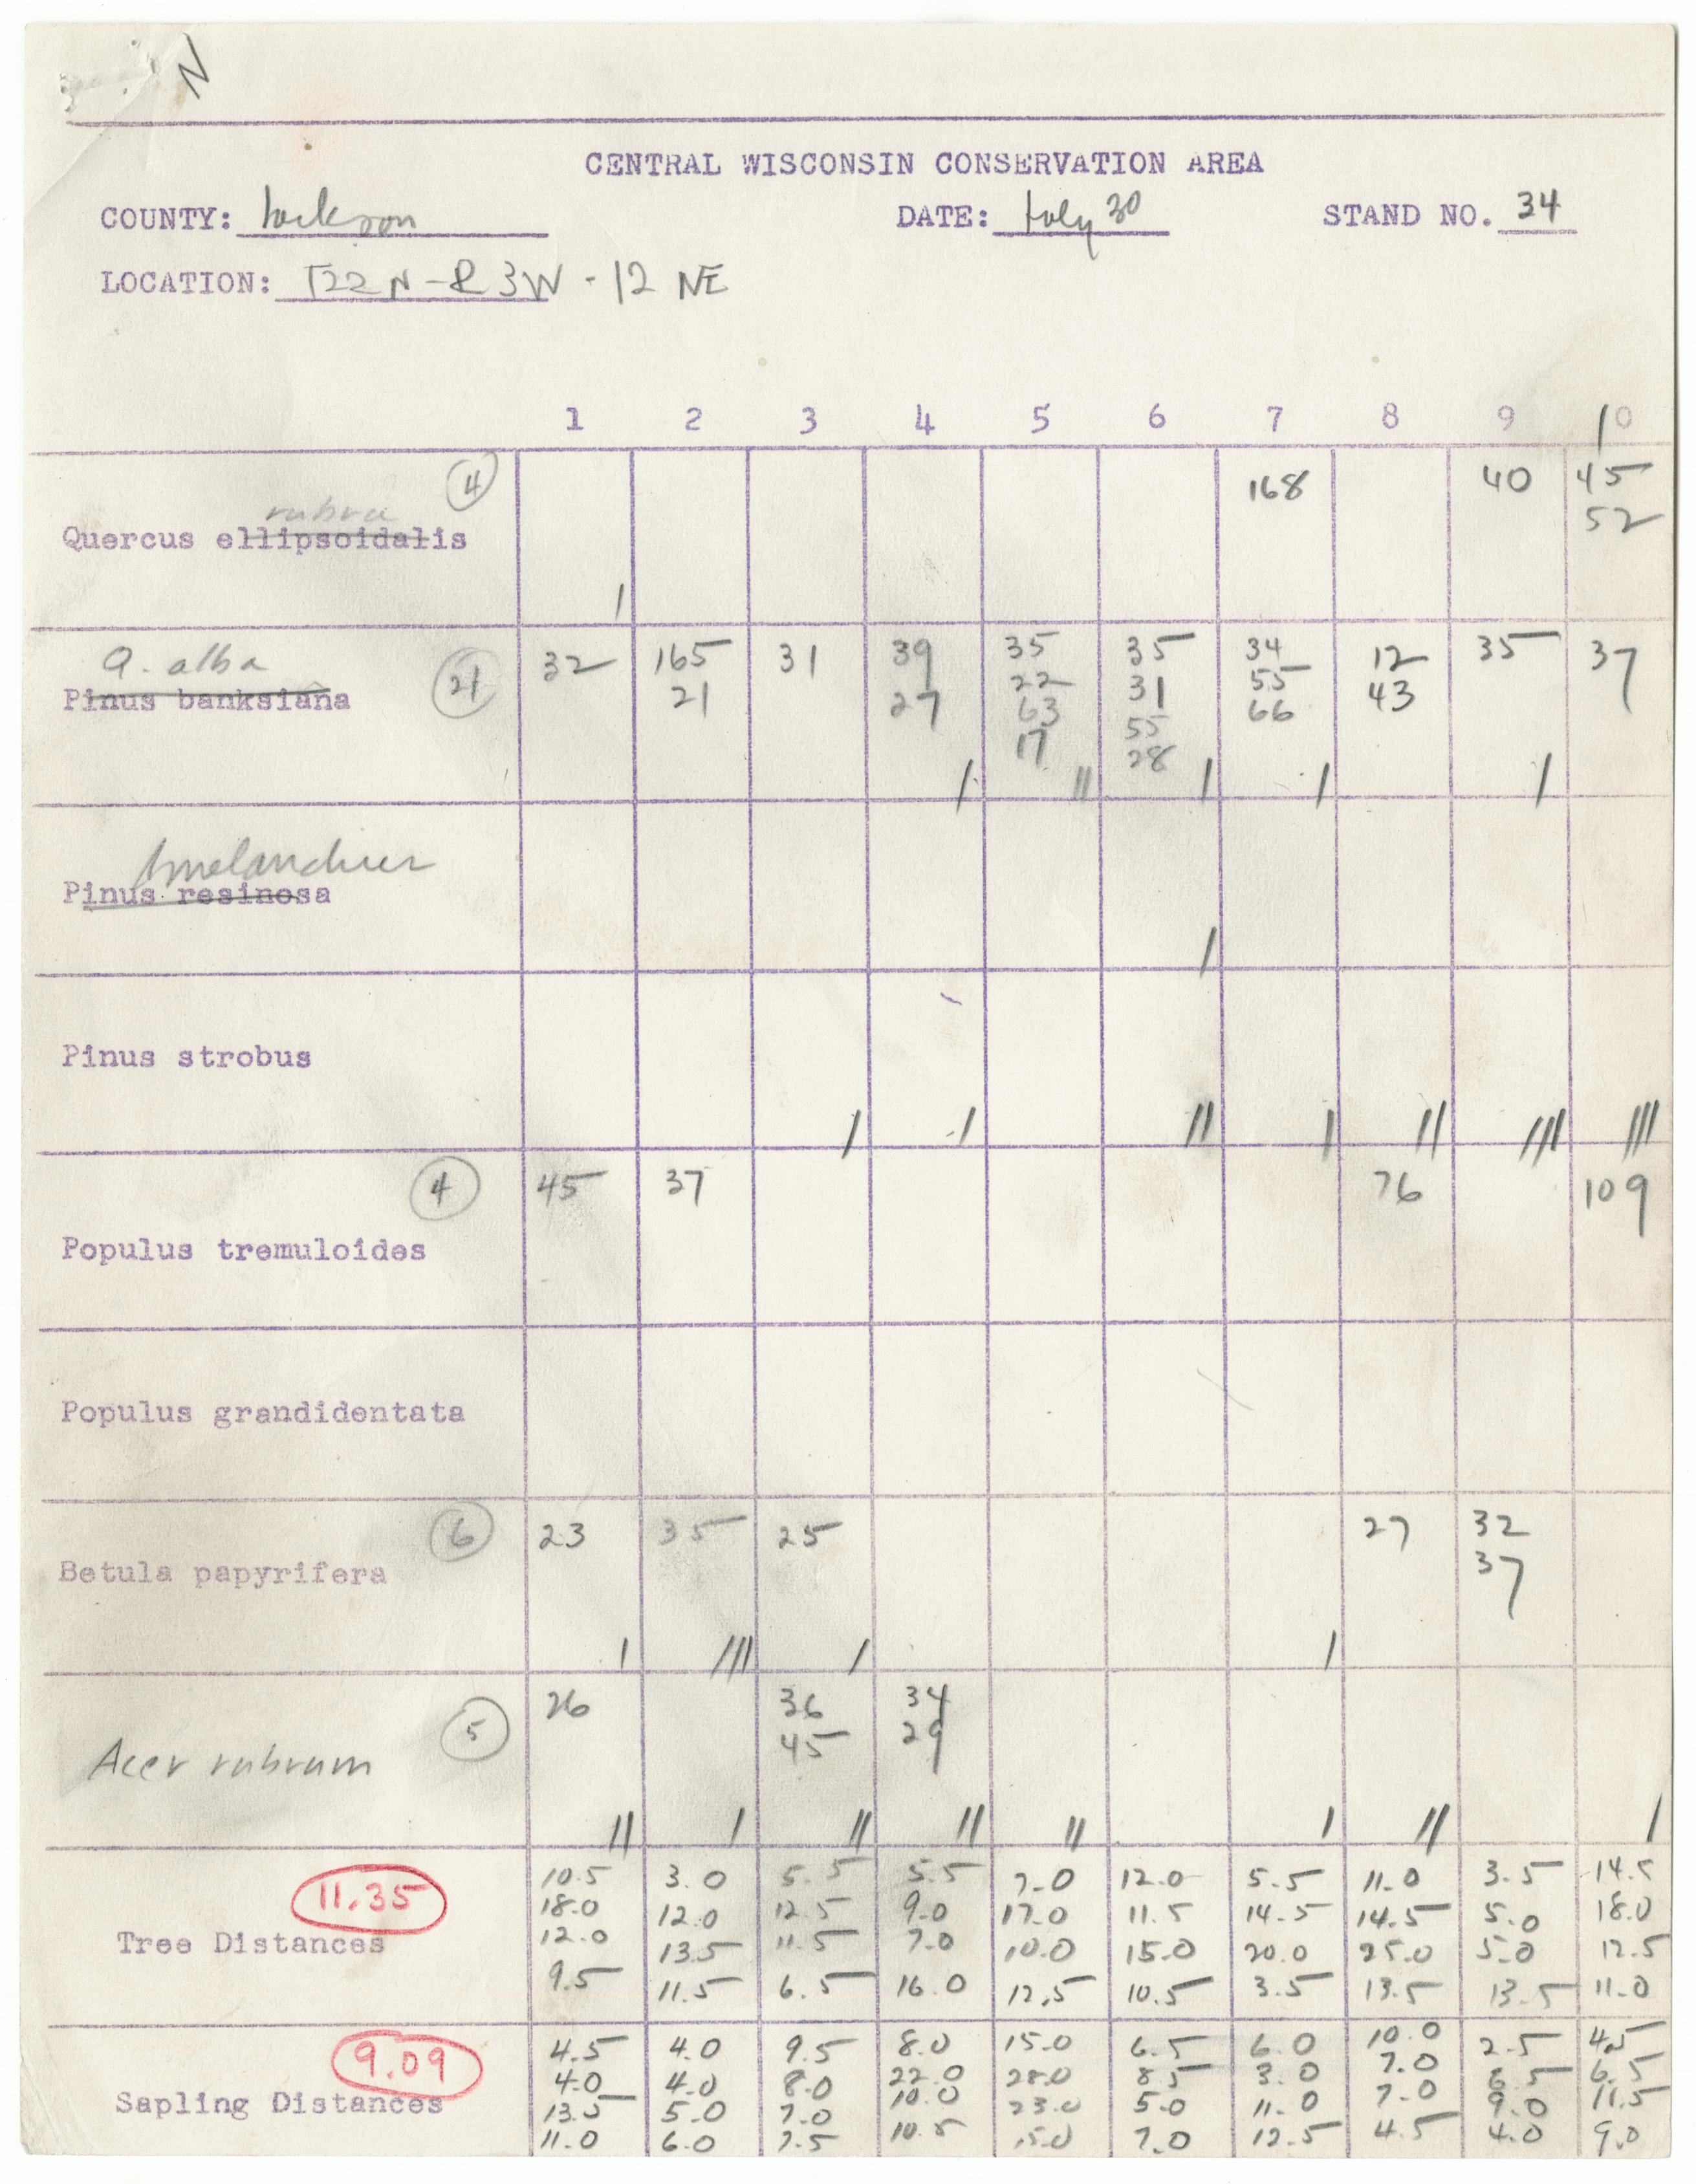 N
CENTRAL WISCONSIN CONSERVATION AREA
COUNTY: Jackson DATE: July 30 STAND NO. 34
LOCATION: T22N-R3W-12 NE
1 2 3 4 5 6 7 8 9 10
4 168 40 45
rubra 52
Quercus ellipsoidalis
|
Q. alba 21 32 165 31 39 35 35 34 12 35 37
Pinus banksiana 21 27 22 31 55 43
63 55 66
17 28
| || | | |
Amelanchier
Pinus resinosa
|
Pinus strobus
| | || | || ||| |||
4 45 37 76 109
Populus tremuloides
Populus grandidentata
6 23 35 25 27 32
Betula papyrifera 37
| ||| | |
5 26 36 34
45 29
Acer rubrum
|| | || || || | || |
11.35 10.5 3.0 5.5 5.5 7.0 12.0 5.5 11.0 3.5 14.5
18.0 12.0 12.5 9.0 17.0 11.5 14.5 14.5 5.0 18.0
Tree Distances 12.0 13.5 11.5 7.0 10.0 15.0 20.0 25.0 5.0 12.5
9.5 11.5 6.5 16.0 12.5 10.5 3.5 13.5 13.5 11.0
9.09 4.5 4.0 9.5 8.0 15.0 6.5 6.0 10.0 2.5 4.5
4.0 4.0 8.0 22.0 28.0 8.5 3.0 7.0 6.5 6.5
Sapling Distances 13.5 5.0 7.0 10.0 23.0 5.0 11.0 7.0 9.0 11.5
11.0 6.0 7.5 10.5 15.0 7.0 12.5 4.5 4.0 9.0